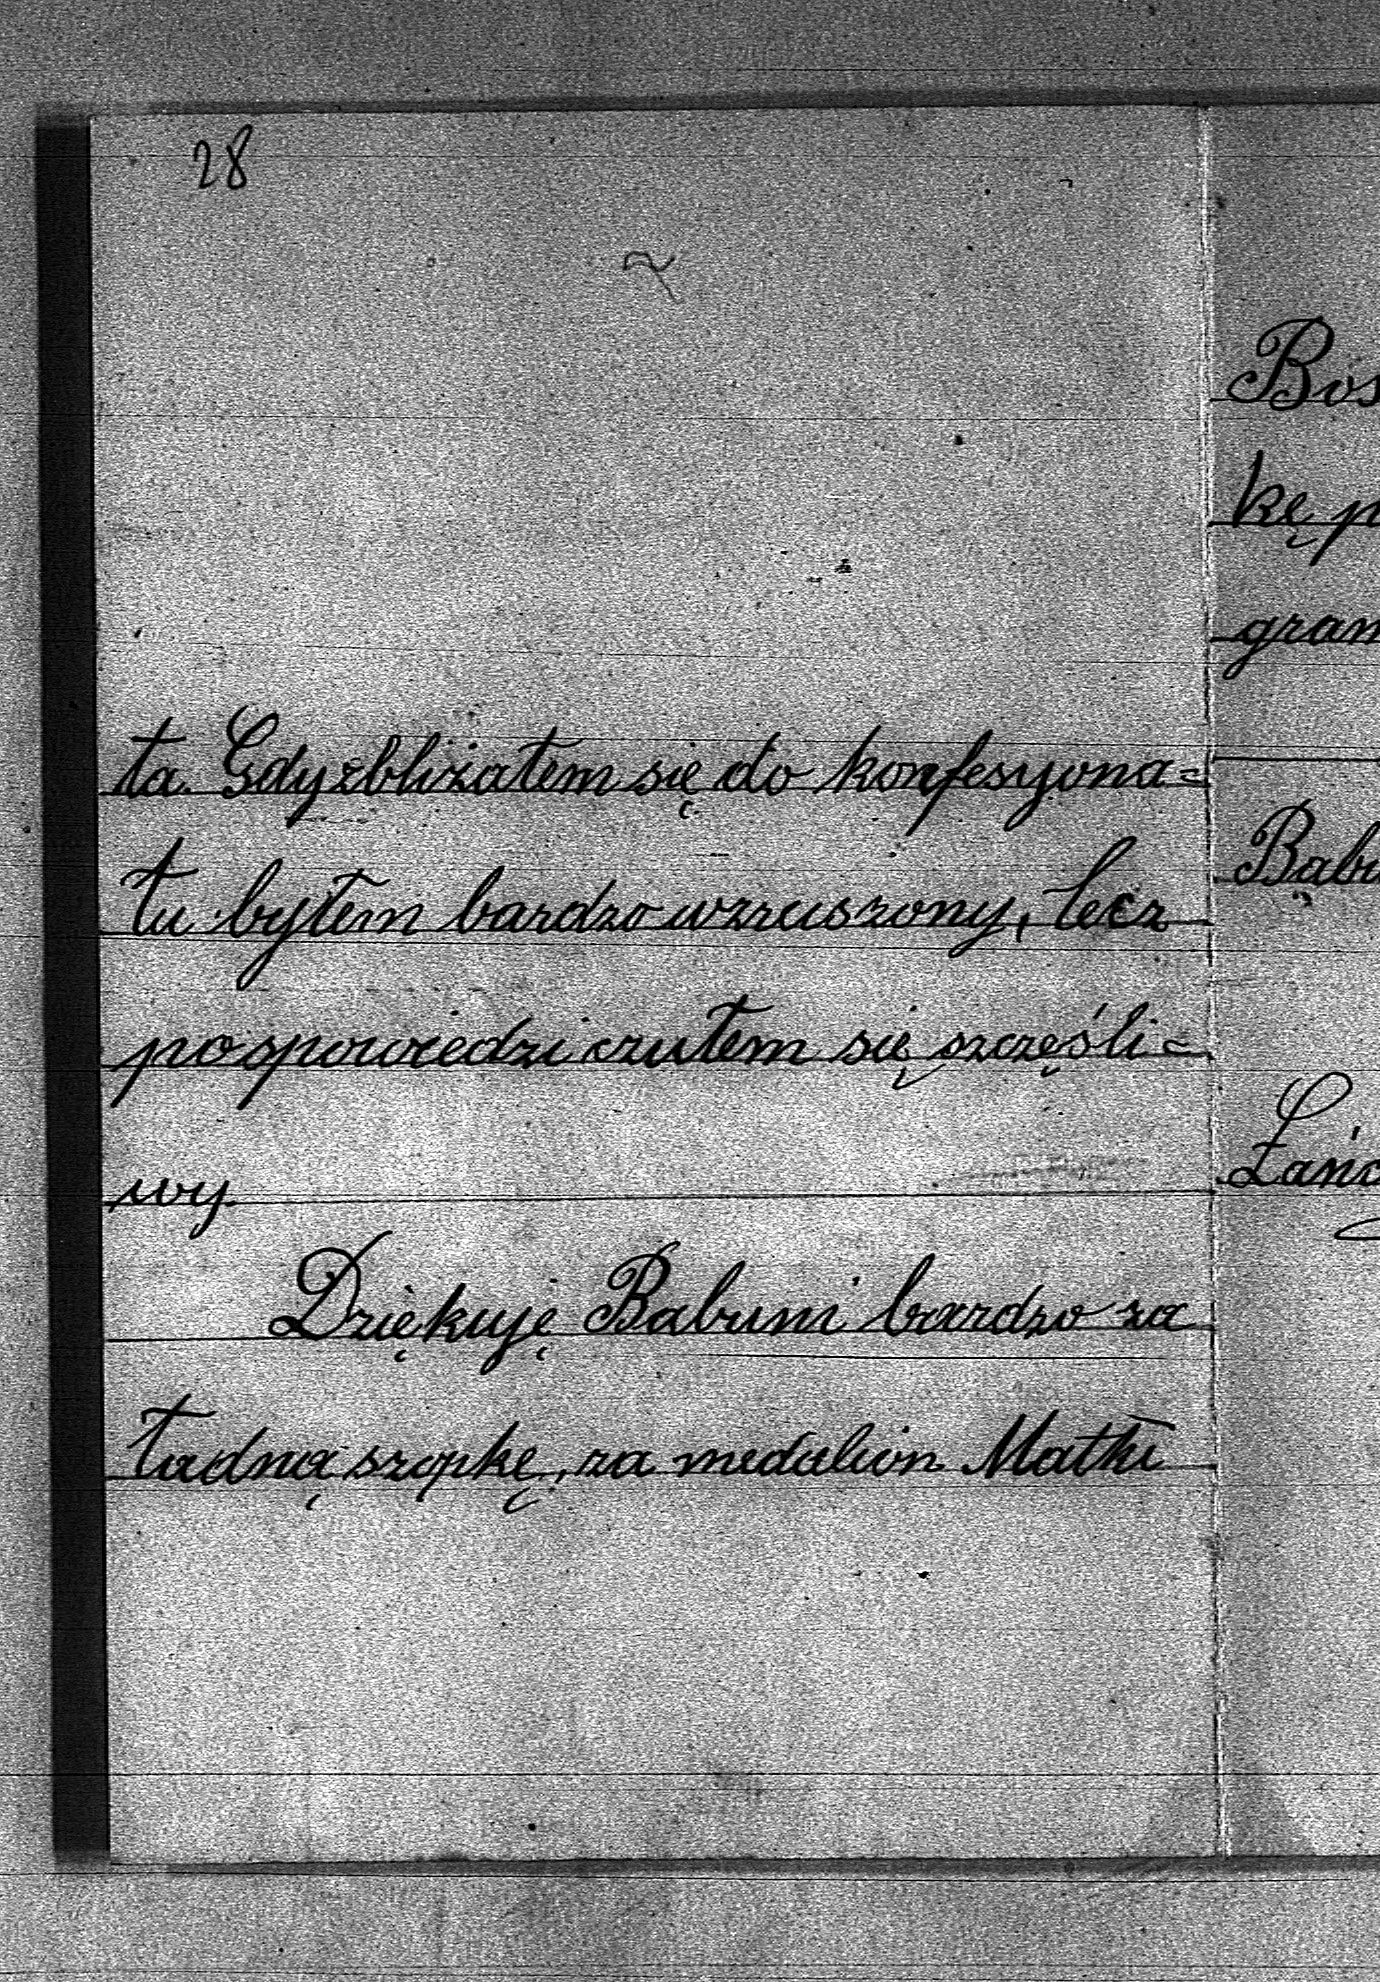 28
ła. Gdy zbliżałem się do konfesyona=
łu byłem bardzo wzruszony, lecz
po spowiedzi czułem się szczęśli=
wy.
Dziękuję Babuni bardzo za
ładną szopkę, za medalion Matki
Bos
kę p
gram
Babu
Łańc